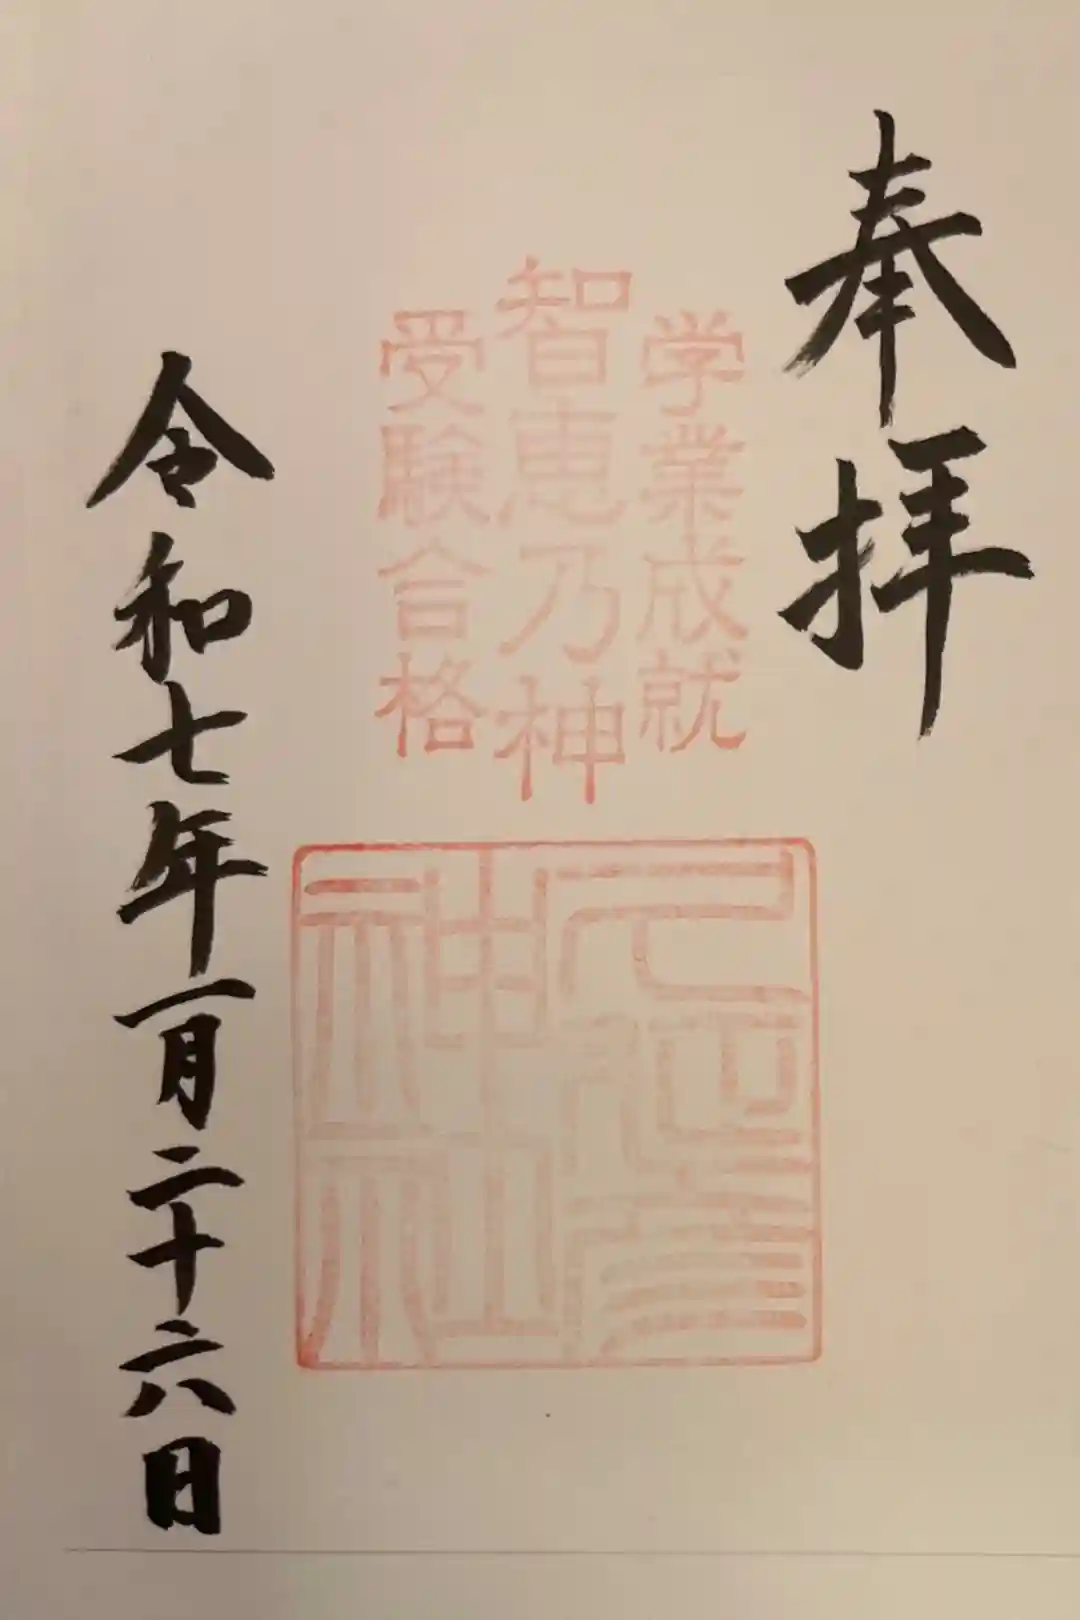 奉拝
学業成就
智恵乃神
受験合格
神社
令和七年一月二十六日